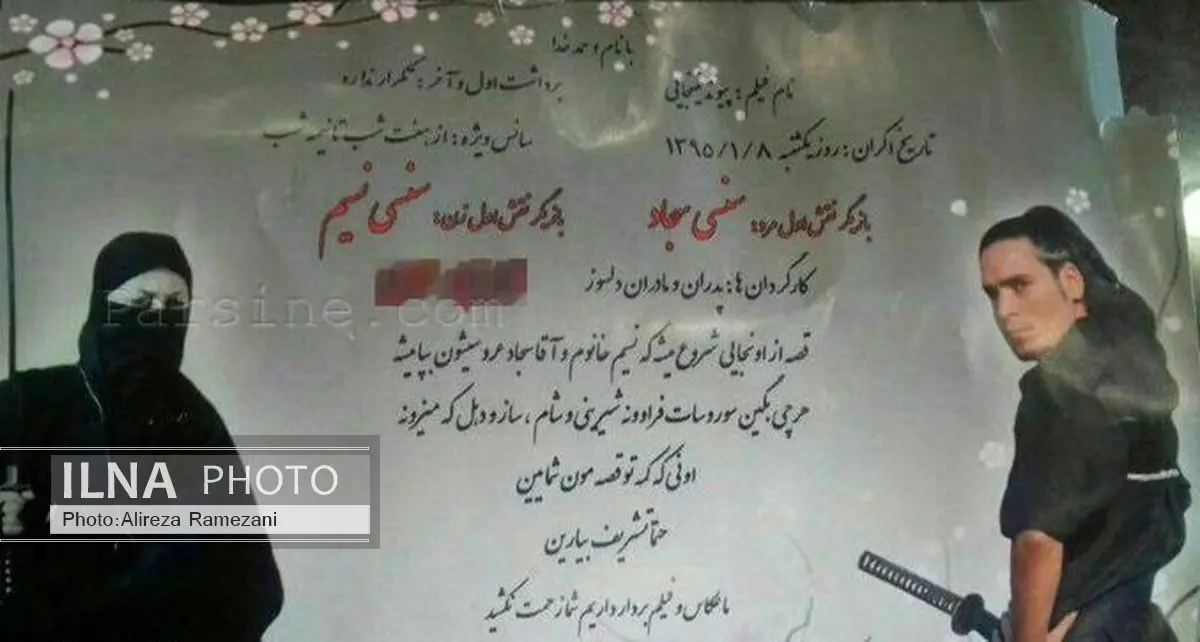 با نام و حمد خدا
نام فیلم: پیوند پنجایی
برداشت اول و آخر: تکرار نداره
تاریخ اکران: روز یکشنبه ۱۳۹۵/۱/۸
سانس ویژه: از هفت شب تا نیمه شب
بازیگر نقش اول مرد: سنسی سجاد
بازیگر نقش اول زن: سنسی نسیم
کارگردان ها: پدران و مادران دلسوز
Parsine.com
قصه از اونجایی شروع میشه که نسیم خانوم و آقا سجاد عروسیشون بپا میشه
هرچی بگین سوروسات فراوونه شیرینی و شام، ساز و دهل که میزونه
اونی که کمه تو قصه مون شمایین
حتما تشریف بیارین
ما عکاس و فیلم بردار داریم شما زحمت نکشید
ILNA PHOTO
Photo:Alireza Ramezani